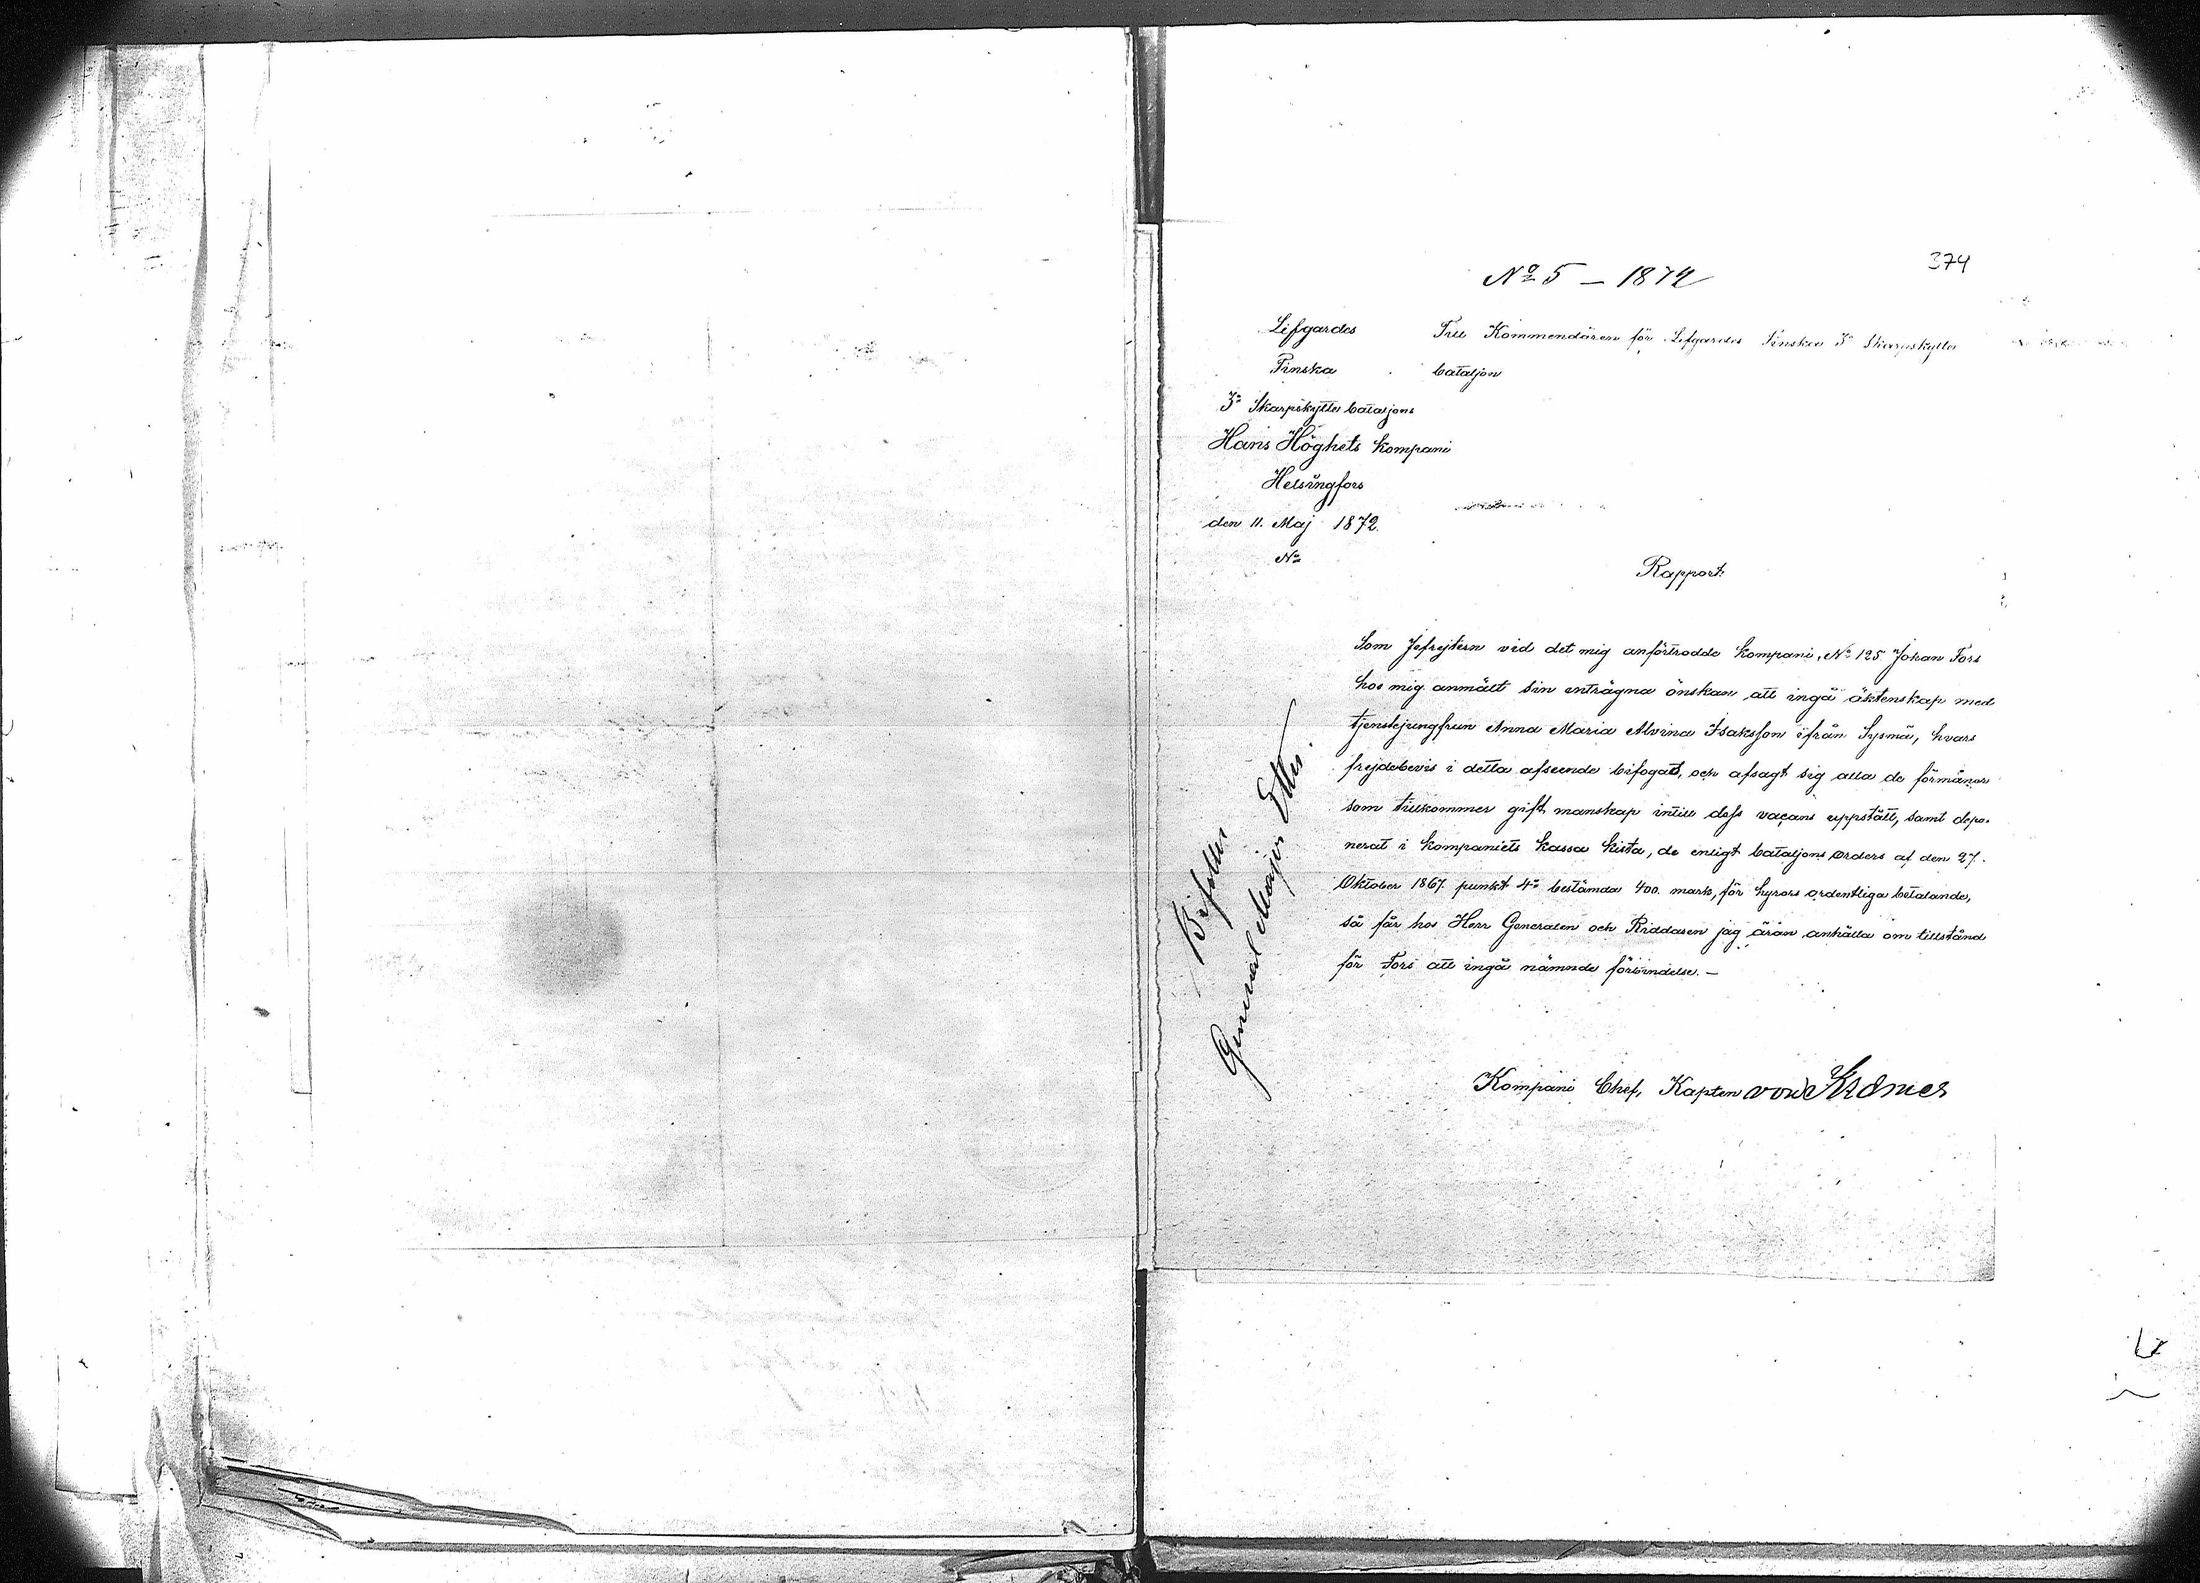 374
No 5 – 1872
Lifgardes
Finska
3e Skarpskytte bataljons
Hans Höghets Kompani
Helsingfors
den 11. Maj 1872.
No
Till Kommendören för Lifgardes Finska 3e Skarpskytte
bataljon
Rapport.
Som Jefrejtern vid det mig anförtrodde kompani, No 125 Johan Fors
hos mig anmält sin enträgna önskan att ingå äktenskap med
tjenstejungfrun Anna Maria Alvina Isaksson ifrån Sysmä, hvars
frejdebevis i detta afseende bifogats, och afsagt sig alla de förmåner
som tillkommer gift manskap intill dess vacans uppstått, samt depo-
nerat i kompaniets kassa kista, de enligt bataljons orders af den 27.
Oktober 1867. punkt 4e bestämda 400. mark, för hyrors ordentliga betalande,
så får hos Herr Generalen och Riddaren jag äran anhålla om tillstånd
för Fors att ingå nämnde förbindelse. –
Kompani Chef, Kapten von Kræmer
Bifalles
General Major